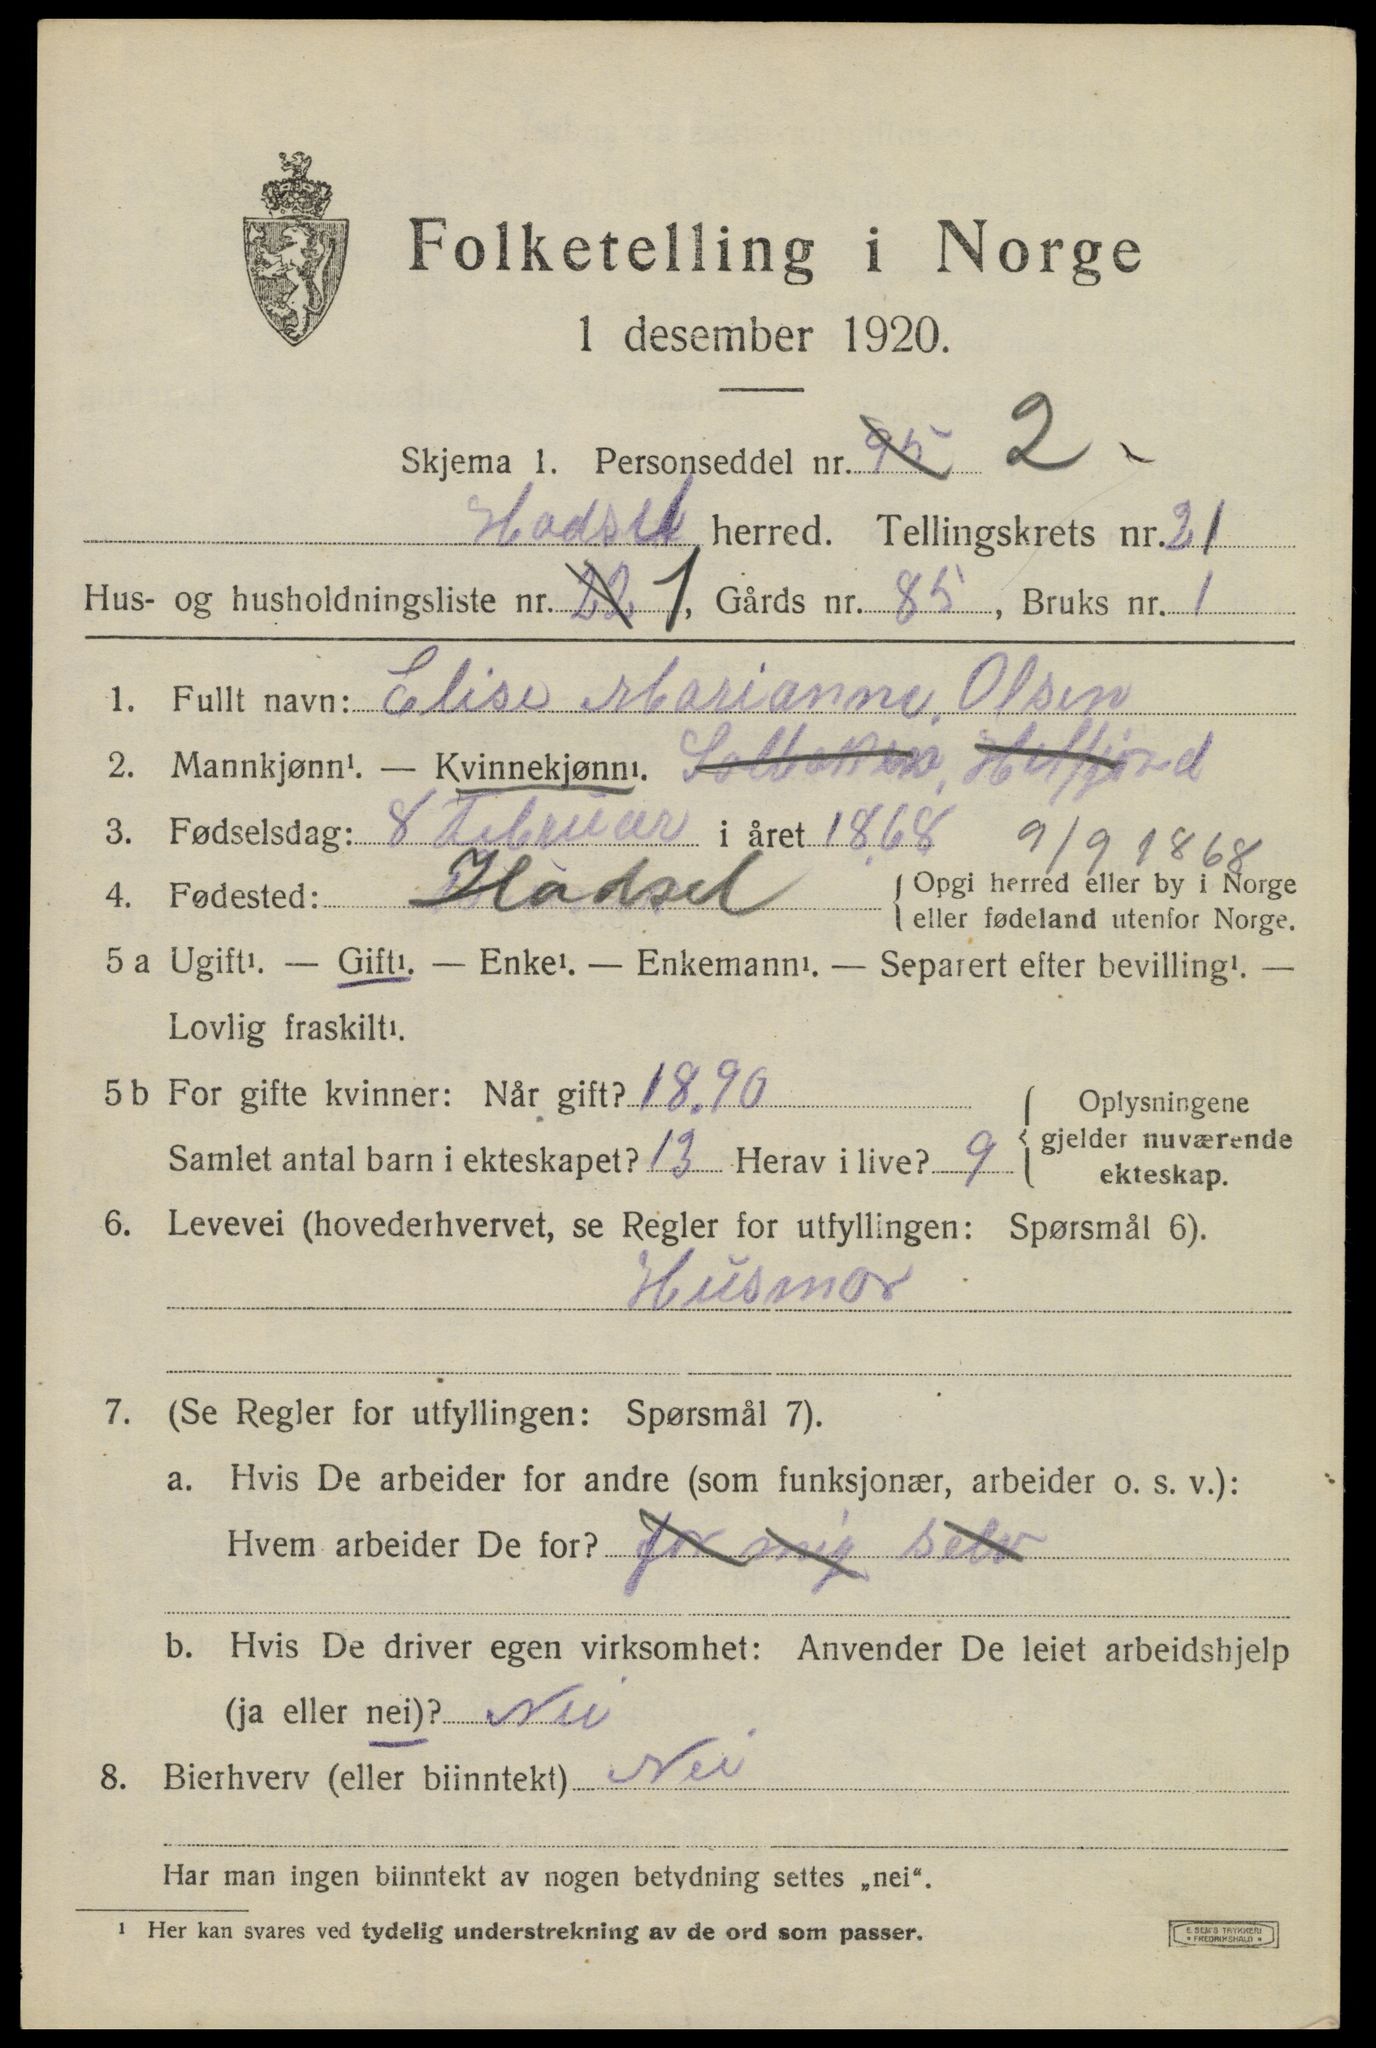 Folketelling i Norge
1 desember 1920.
Skjema 1. Personseddel nr. 95 2
Hadsel herred. Tellingskrets nr. 21
Hus- og husholdningsliste nr. 22 1, Gårds nr. 85, Bruks nr. 1
1. Fullt navn: Elise Marianne Olsen
2. Mannkjønn¹. — Kvinnekjønn¹.
3. Fødselsdag: 8 Februar i året 1868 9/9 1868
4. Fødested: Hadsel { Opgi herred eller by i Norge
eller fødeland utenfor Norge.
5 a Ugift¹. — Gift¹. — Enke¹. — Enkemann¹. — Separert efter bevilling¹. —
Lovlig fraskilt¹.
5 b For gifte kvinner: Når gift? 1890
Samlet antal barn i ekteskapet? 13 Herav i live? 9 { Oplysningene
gjelder nuværende
ekteskap.
6. Levevei (hovederhvervet, se Regler for utfyllingen: Spørsmål 6).
Husmor
7. (Se Regler for utfyllingen: Spørsmål 7).
a. Hvis De arbeider for andre (som funksjonær, arbeider o. s. v.):
Hvem arbeider De for? for mig selv
b. Hvis De driver egen virksomhet: Anvender De leiet arbeidshjelp
(ja eller nei)? Nei
8. Bierhverv (eller biinntekt) Nei
Har man ingen biinntekt av nogen betydning settes „nei“.
¹ Her kan svares ved tydelig understrekning av de ord som passer.
E. SEM'S TRYKKERI
FREDRIKSHALD